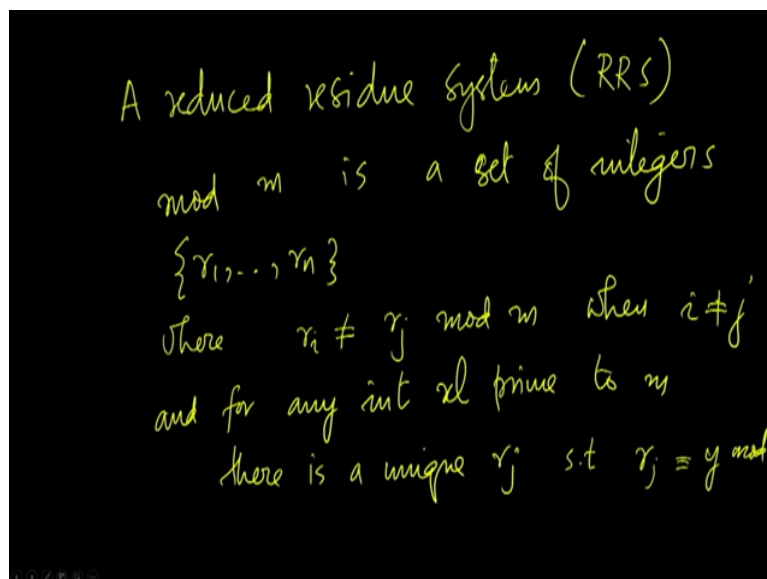 A reduced residue system (RRS)
mod m is a set of integers
{r₁, ..., rₙ}
where rᵢ ≢ rⱼ mod m when i ≠ j
and for any int rel prime to m
there is a unique rⱼ s.t rⱼ ≡ y mod